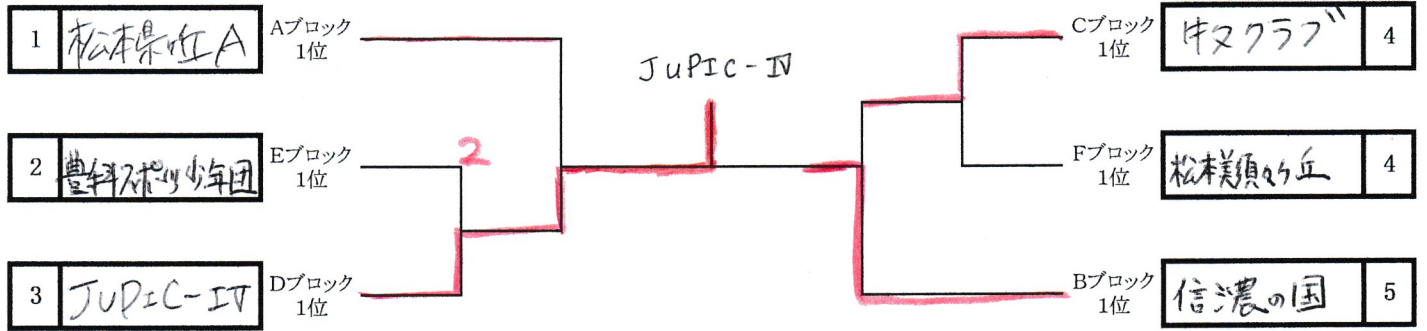 1 松本県ヶ丘A Aブロック 1位
2 豊科スポーツ少年団 Eブロック 1位
3 JUPIC-IV Dブロック 1位
2
JUPIC-IV
Cブロック 1位 中又クラブ 4
Fブロック 1位 松本美須々ヶ丘 4
Bブロック 1位 信濃の国 5